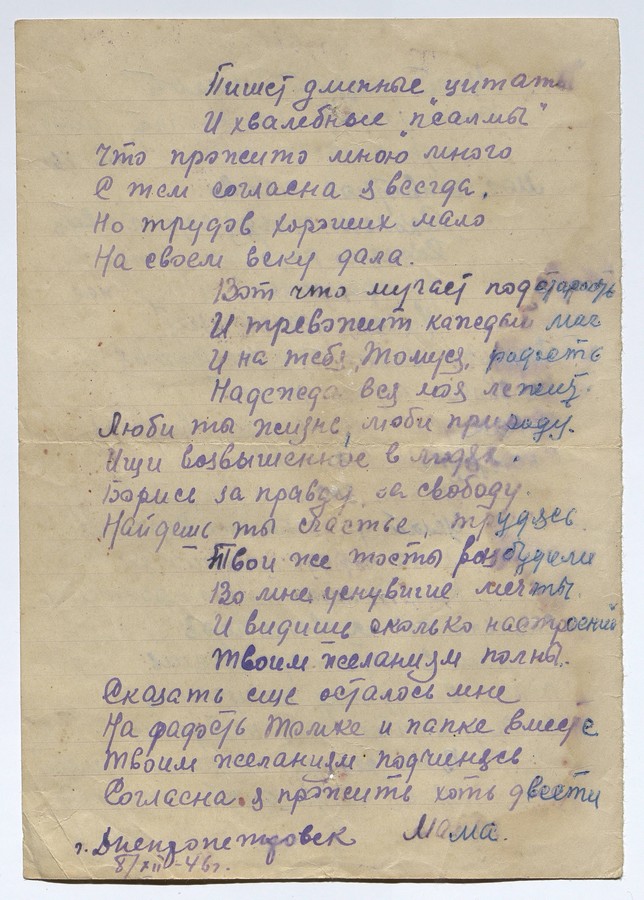 Пишет длинные цитаты
И хвалебные "псалмы"
Что прожито мною много
С тем согласна я всегда.
Но трудов хороших мало
На своем веку дала.
Вот что мучает под старость
И тревожит каждый миг
И на тебя, Томуся, радость
Надежда вся моя лежит.
Люби ты жизнь, люби природу.
Ищи возвышенное в людях.
Борись за правду, за свободу.
Найдешь ты счастье, трудясь
Твои же тосты разбудили
Во мне уснувшие мечты
И видишь сколько настроений
Твоим желаниям полны.
Сказать еще осталось мне
На радость Томке и папке вместе
Твоим желаниям подчинюсь
Согласна я прожить хоть двести
Мама.
г. Днепропетровск
8/XII-46г.